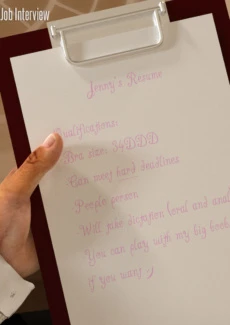 Job Interview
Jenny's Resume
Qualifications:
Bra size: 36DDD
Can meet hard deadlines
People person
Will take dictation (oral and anal
You can play with my big boob
if you want